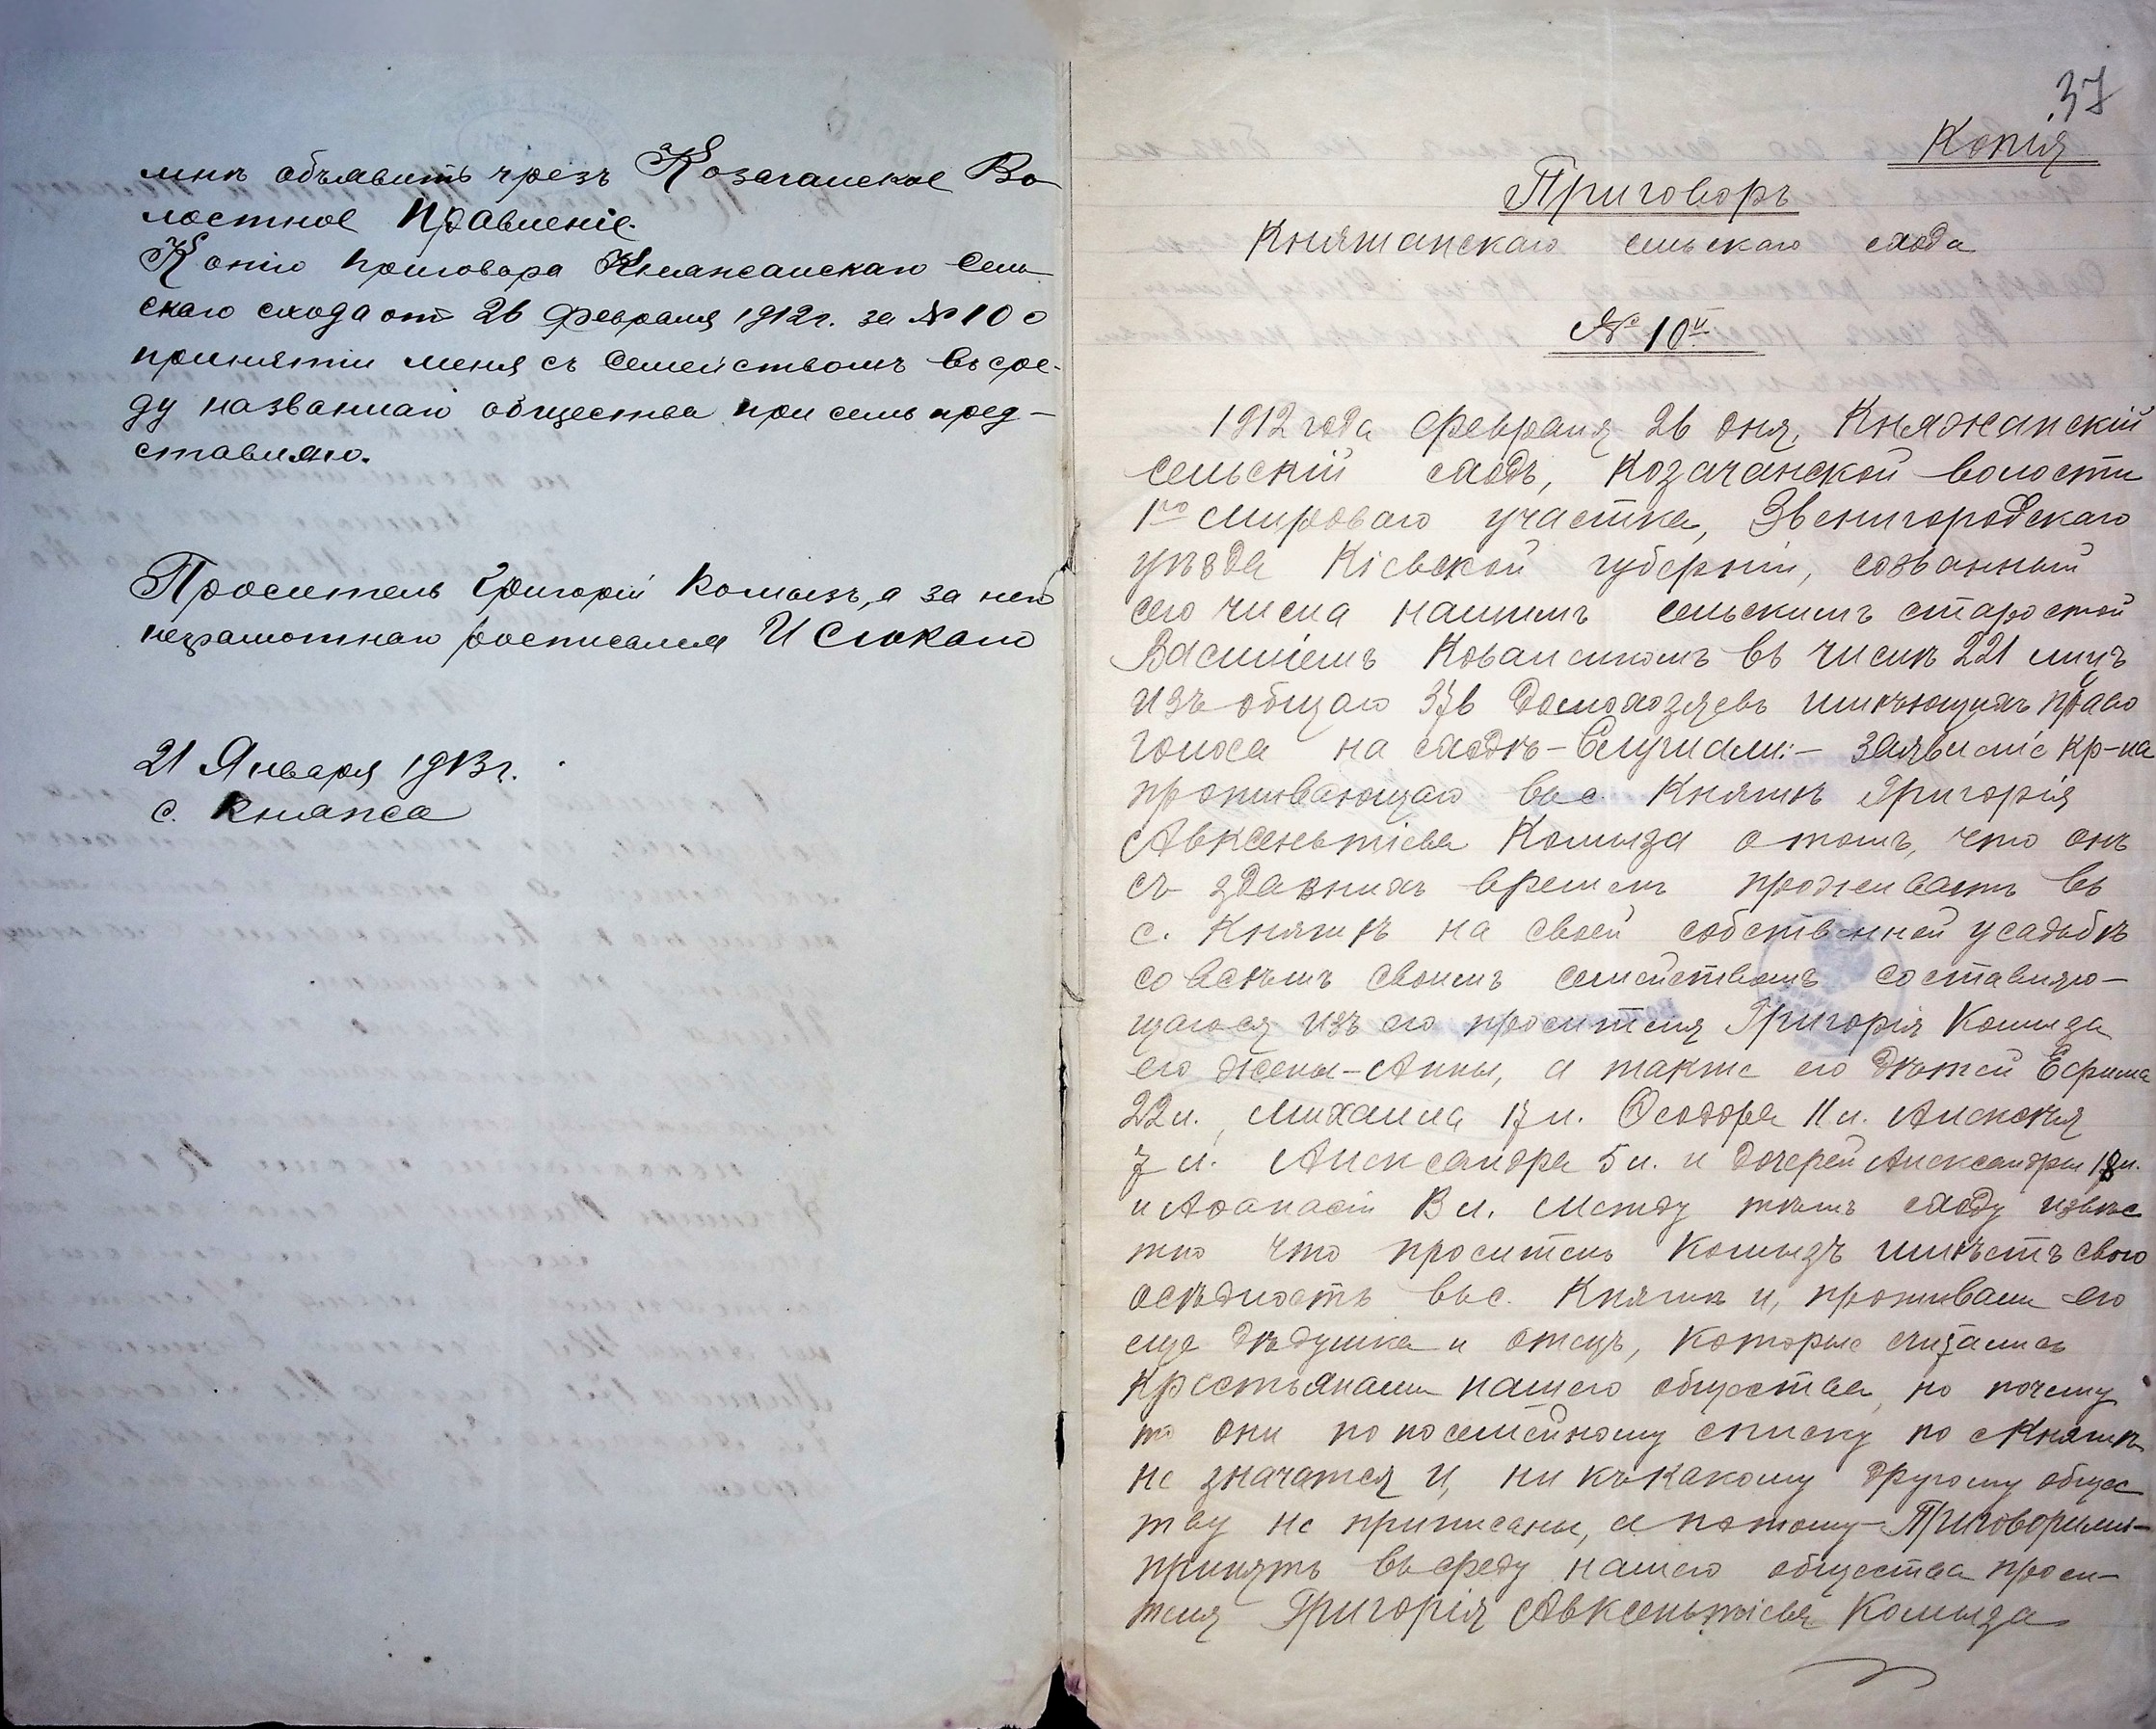 мнѣ объявить чрезъ Козачанское Во-
лостное Правленіе.
Копію приговора Княжанскаго Сель-
скаго схода от 26 Февраля 1912 г. за № 10 о
принятіи меня съ Семействомъ въ сре-
ду названнаго общества при семъ пред-
ставляю.
Проситель Григорій Колызъ, а за него
неграмотнаго росписался И Слюкало
21 Января 1913 г.
с. Княжа
37
Копія
Приговоръ
Княжанскаго сельскаго схода
№ 10й
1912 года февраля 26 дня, Княжанскій
сельскій сходъ, Козачанской волости
1го мирового участка, Звенигородскаго
уѣзда Кіевской губерніи, созванный
сего числа нашимъ сельскимъ старостой
Василіемъ Ковалинкомъ въ числѣ 221 лицъ
изъ общаго 376 домохозяевъ имѣющихъ право
голоса на сходѣ – Слушали: – заявленіе кр-на
проживающаго въ с. Княжѣ Григорія
Авксентьіева Колыза о томъ, что онъ
съ здавнихъ времемъ проживаетъ въ
с. Княжѣ на своей собственной усадьбѣ
со всѣмъ своимъ семействомъ составляю-
щагося изъ его просителя Григорія Колыза
его жены – Анны, а также его дѣтей Ефрима
22 л., Михаила 17 л. Ѳеодора 11 л. Алексѣя
7 л. Александра 5 л. и дочерей Александры 18 л.
и Аѳанасіи 13 л. Между тѣмъ сходу извѣс
тно что проситель Колызъ имѣетъ свою
осѣдлость въ с. Княжѣ и, проживали его
еще дѣдушка и отецъ, которые считались
крестьянами нашего общества, но почему
то они по посемейному списку по с Княжѣ
не значатся и, ни къ какому другому общес
тву не приписаны, а потому – Приговорили –
принять въ среду нашего общества проси-
теля Григорія Авксентьіева Колыза